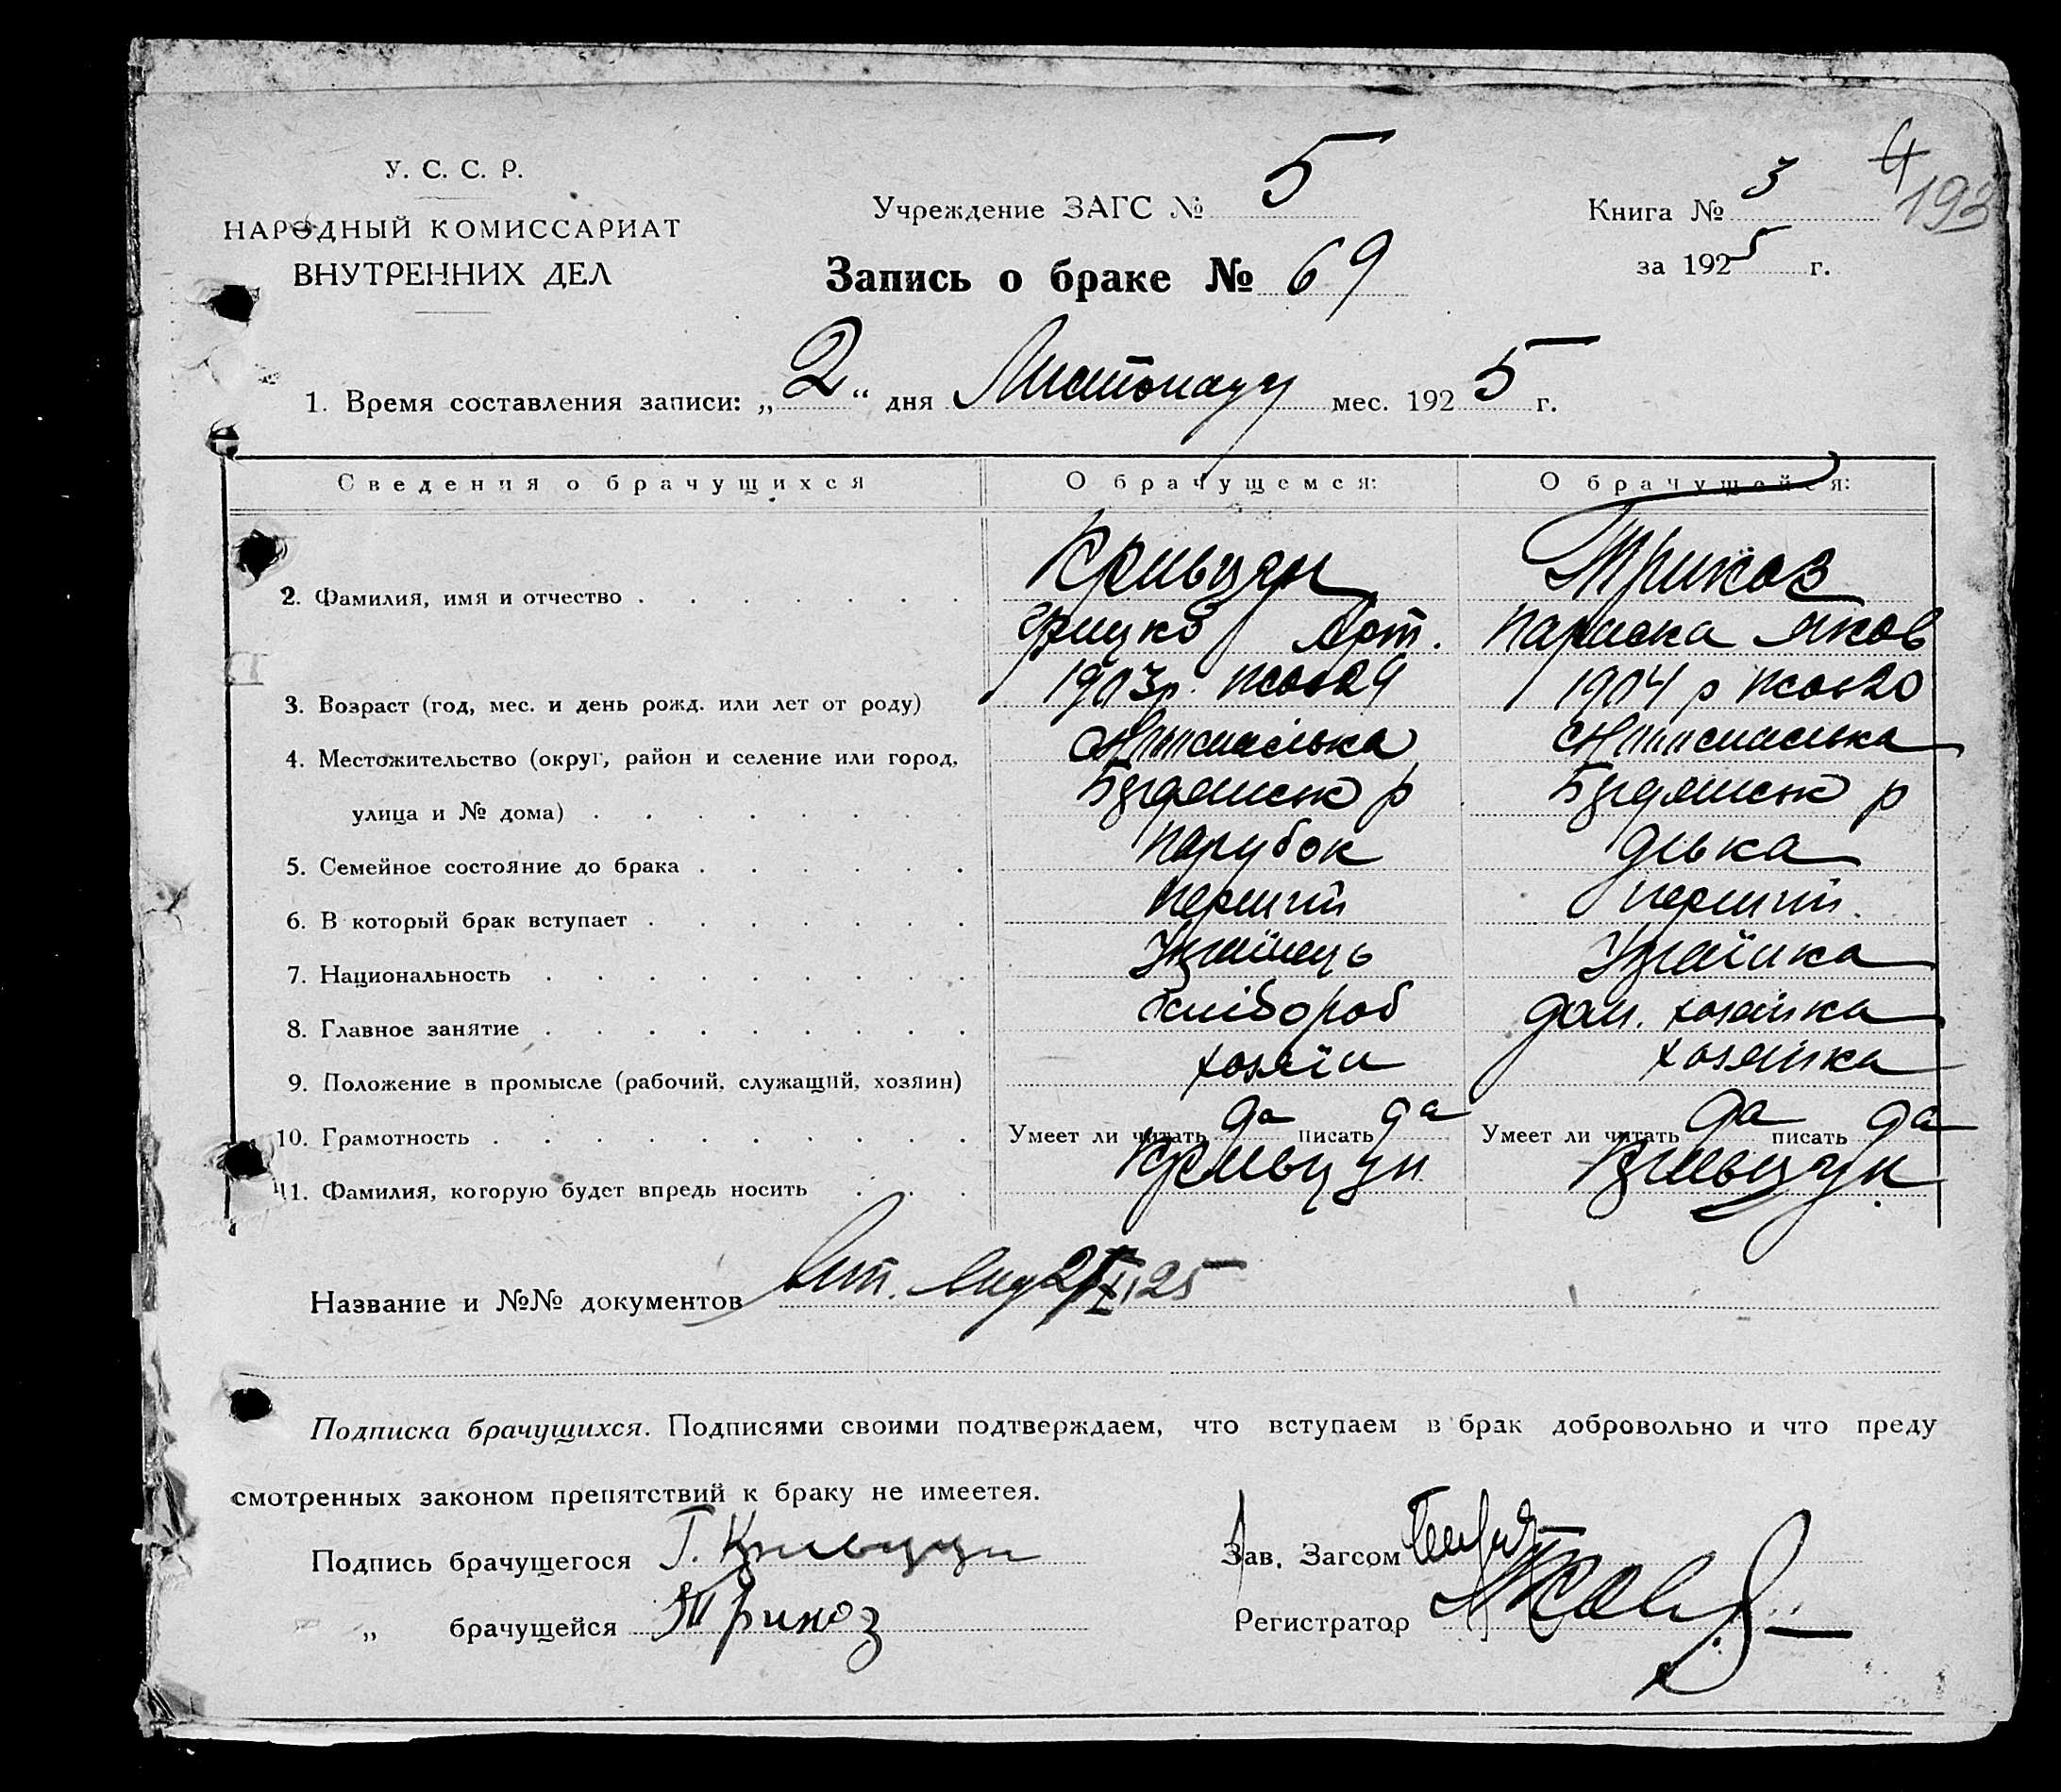 У. С. С. Р.
НАРОДНЫЙ КОМИССАРИАТ
ВНУТРЕННИХ ДЕЛ
Учреждение ЗАГС № 5
Книга № 3
4
193
за 1925 г.
Запись о браке № 69
1. Время составления записи: „2“ дня Листопаду мес. 1925 г.
Сведения о брачущихся
О брачущемся:
О брачущейся:
2. Фамилия, имя и отчество
Кривцун
Грицко Арт.
Трикоз
Параска Яков
3. Возраст (год, мес. и день рожд. или лет от роду)
1903р.
1904 р
4. Местожительство (округ, район и селение или город,
улица и № дома)
р
р
5. Семейное состояние до брака
парубок
дівка
6. В который брак вступает
перший
перший
7. Национальность
Українець
Українка
8. Главное занятие
хлібороб
дом. хозяйка
9. Положение в промысле (рабочий, служащий, хозяин)
хозяїн
хозяйка
10. Грамотность
Умеет ли читать да писать да
Умеет ли читать да писать да
11. Фамилия, которую будет впредь носить
Кривцун
Кривцун
Название и №№ документов 25
Подписка брачущихся. Подписями своими подтверждаем, что вступаем в брак добровольно и что преду
смотренных законом препятствий к браку не имеетея.
Подпись брачущегося Г. Кривцун
„ брачущейся Трикоз
Зав. Загсом
Регистратор